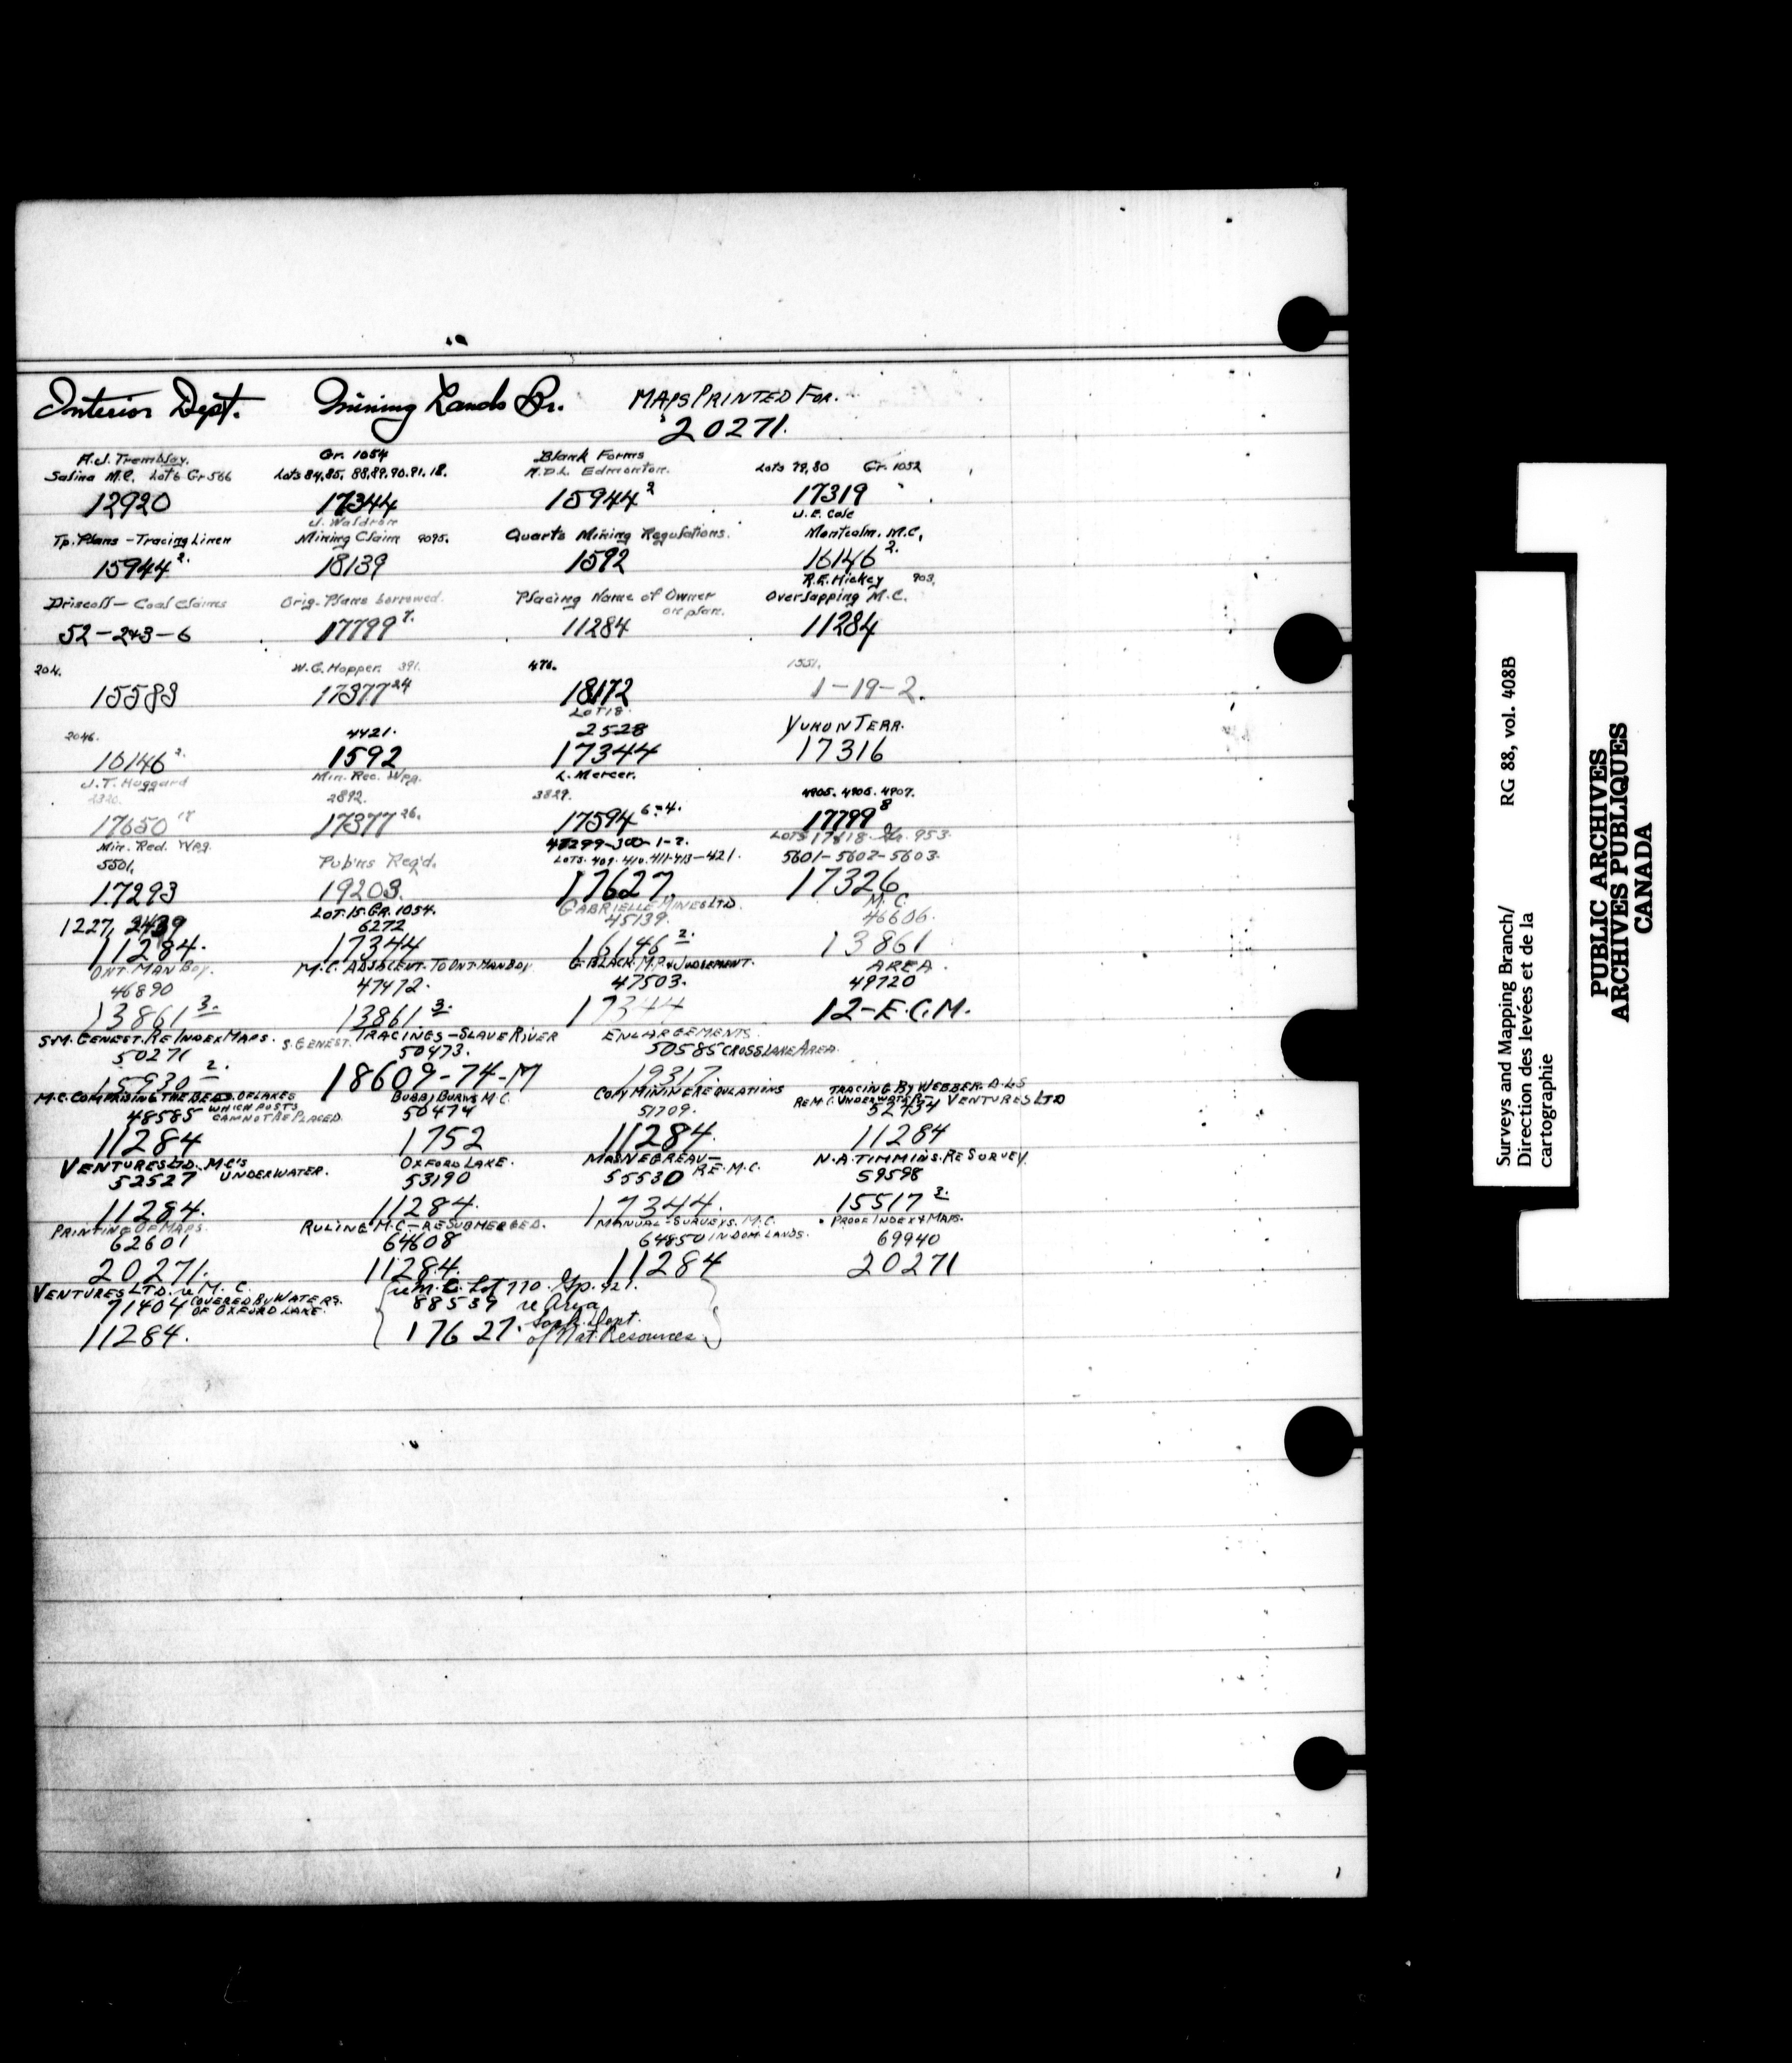 Interior Dept. Mining Lands Br. MAPS PRINTED FOR.
20271.
A.J. Tremblay. Gr. 1054 Blank Forms
Salina M.C. Lot 6 Gr 566 Lots 84,85, 88,89,90,91,18. A.D.L. Edmonton. Lots 79,80 Gr. 1052
12920 17344 15944 2 17319
J. Waldron J.E. Cole
Tp. Plans - Tracing Linen Mining Claim 9095. Quartz Mining Regulations. Montcalm. M.C.
15944 2. 18139 1592 16146 2.
R.E. Hickey 903.
Driscoll - Coal Claims Orig. Plans borrowed. Placing Name of Owner Overlapping M.C.
on plan.
52-243-6 17799 7. 11284 11284
204. W.G. Hopper. 391. 476. 1551.
15583 17377 24 18172 1-19-2.
LOT 18.
2046. 4421. 2528 YUKON TERR.
16146 2. 1592 17344 17316
J.T. Huggard Min. Rec. Wpg. L. Mercer.
2320. 2892. 3829. 4905. 4906. 4907.
17650 18 17377 26. 17594 6=4. 17799 8
Min. Red. Wpg. 48299-300-1-2. LOTS 17&18. Gr. 953.
5501. Pub'ns Req'd. LOTS. 409. 410. 411-413-421. 5601-5602-5603.
17293 19203. 17627. 17326
1227, 2439 LOT. 15. GR. 1054. GABRIELLE MINES LTD. M.C.
6272 45139. 46606.
11284. 17344 16146 2. 13861
ONT. MAN BDY. M.C. ADJACENT. TO ONT. MAN BDY G. BLACK. M.P. & JUDGEMENT. AREA.
46890 47472. 47503. 49720
13861 3. 13861 3. 17344 12-E.C.M.
S.M. GENEST. RE INDEX MAPS. S. GENEST. TRACINGS - SLAVE RIVER ENLARGEMENTS.
50271 50473. 50585 CROSS LAKE AREA.
15930 2. 18609-74-M 19317.
M.C. COMPRISING THE BEDS. OF LAKES BOBBJ BURNS M.C. COPY MINING REGULATIONS TRACING BY WEBBER. D.L.S
48585 WHICH POSTS CANNOT BE PLACED. 50474 51709. RE M.C. UNDERWATER - VENTURES LTD
52734
11284 1752 11284. 11284
VENTURES LTD. M.C'S UNDERWATER. OXFORD LAKE. MASNEGREAU - RE. M.C. N.A. TIMMINS. RE SURVEY
52527 53190 55530 59598
11284. 11284. 17344. 15517 3.
PRINTING OF MAPS. RULING M.C. - RE SUBMERGED. MANUAL - SURVEYS. M.C. PROOF INDEX & MAPS.
62601 64608 64850 IN DOM. LANDS. 69940
20271. 11284. 11284 20271
VENTURES LTD. re M.C. re M.C. Lot 770. Gp. 921.
71404 COVERED BY WATERS. OF OXFORD LAKE. 88539 re Area
11284. 17627. Sask. Dept. of Nat. Resources.
Surveys and Mapping Branch/ RG 88, vol. 408B
Direction des levées et de la
cartographie
PUBLIC ARCHIVES
ARCHIVES PUBLIQUES
CANADA